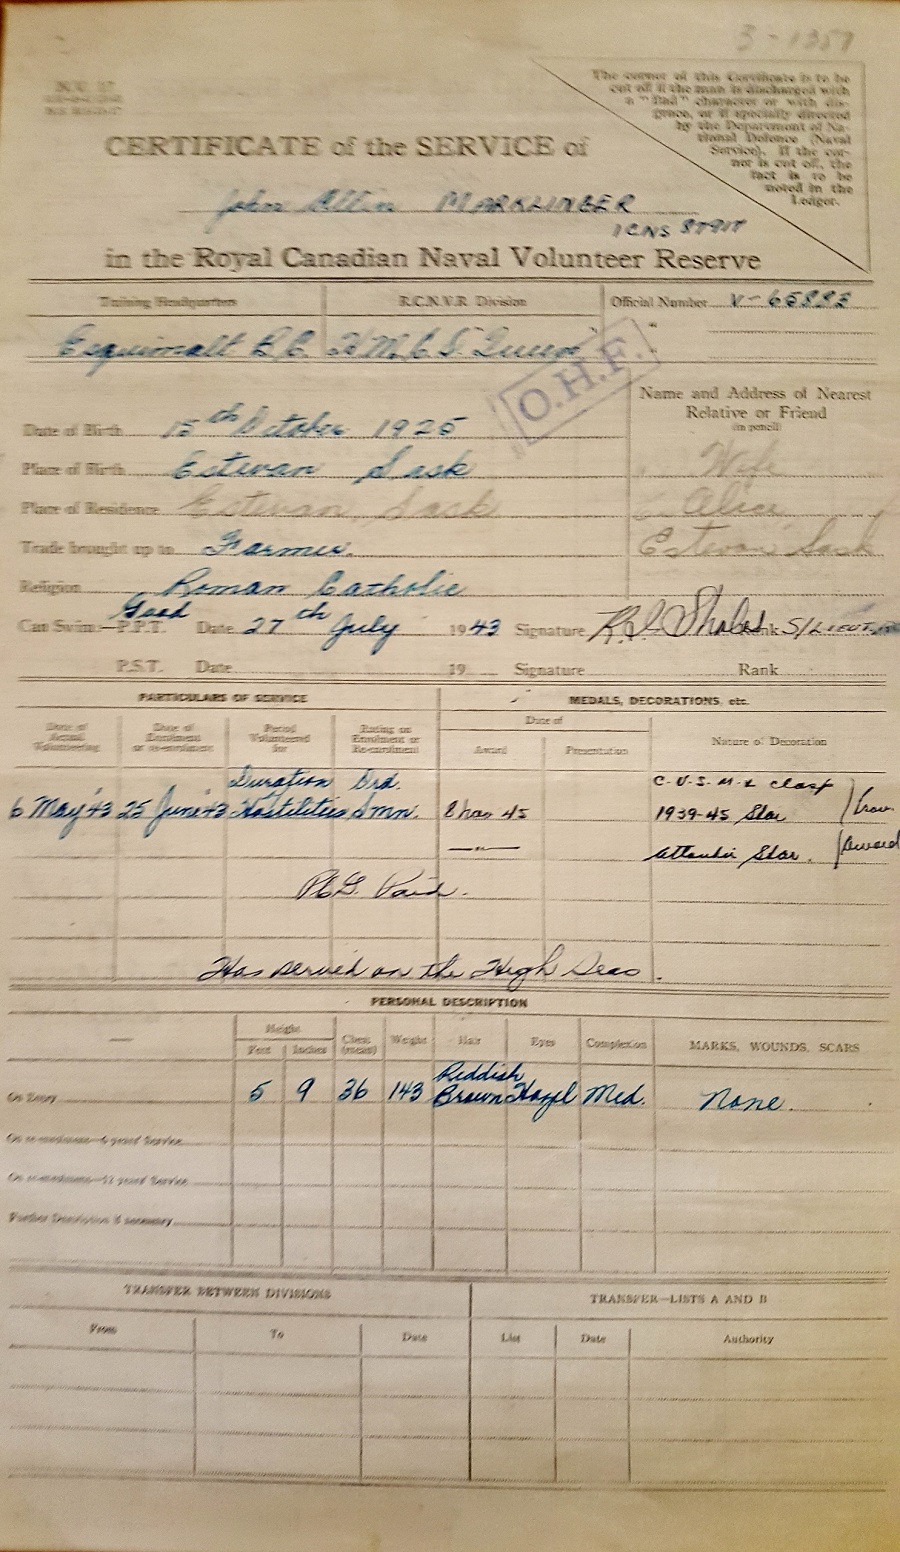 The corner of this Certificate is to be
cut off if the man is discharged with
a "Bad" character or with dis-
grace, or if specially directed
by the Department of Na-
tional Defence (Naval
Service). If the cor-
ner is cut off, the
fact is to be
noted in the
Ledger.
CERTIFICATE of the SERVICE of
John Allin MARKLINGER
in the Royal Canadian Naval Volunteer Reserve
Training Headquarters R.C.N.V.R. Division Official Number V-65883
Esquimalt B.C. H.M.C.S. "Queen"
O.H.F.
Name and Address of Nearest
Relative or Friend
(in pencil)
Date of Birth 15th October 1925
Wife
Place of Birth Estevan Sask
Alice
Place of Residence Estevan, Sask
Estevan Sask
Trade brought up to Farmer.
Religion Roman Catholic
Good
Can Swim:—P.P.T. Date 27th July 1943 Signature Rank S/LIEUT.
P.S.T. Date 19 Signature Rank
PARTICULARS OF SERVICE MEDALS, DECORATIONS, etc.
Date of Actual Volunteering Date of Enrolment or re-enrolment Period Volunteered for Rating on Enrolment or Re-enrolment Date of Award Presentation Nature of Decoration
Duration Ord. C.V.S.M. & clasp
6 May '43 25 June '43 Hostilities Smn. 45 1939-45 Star
—"— Atlantic Star. Award
Paid.
Has served on the High Seas.
PERSONAL DESCRIPTION
Height Chest (mean) Weight Hair Eyes Complexion MARKS, WOUNDS, SCARS
Feet Inches
Reddish
On Entry 5 9 36 143 Brown Hazel Med. None.
On re-enrolment—6 years' Service
On re-enrolment—12 years' Service
Further Description if necessary
TRANSFER BETWEEN DIVISIONS TRANSFER—LISTS A AND B
From To Date List Date Authority